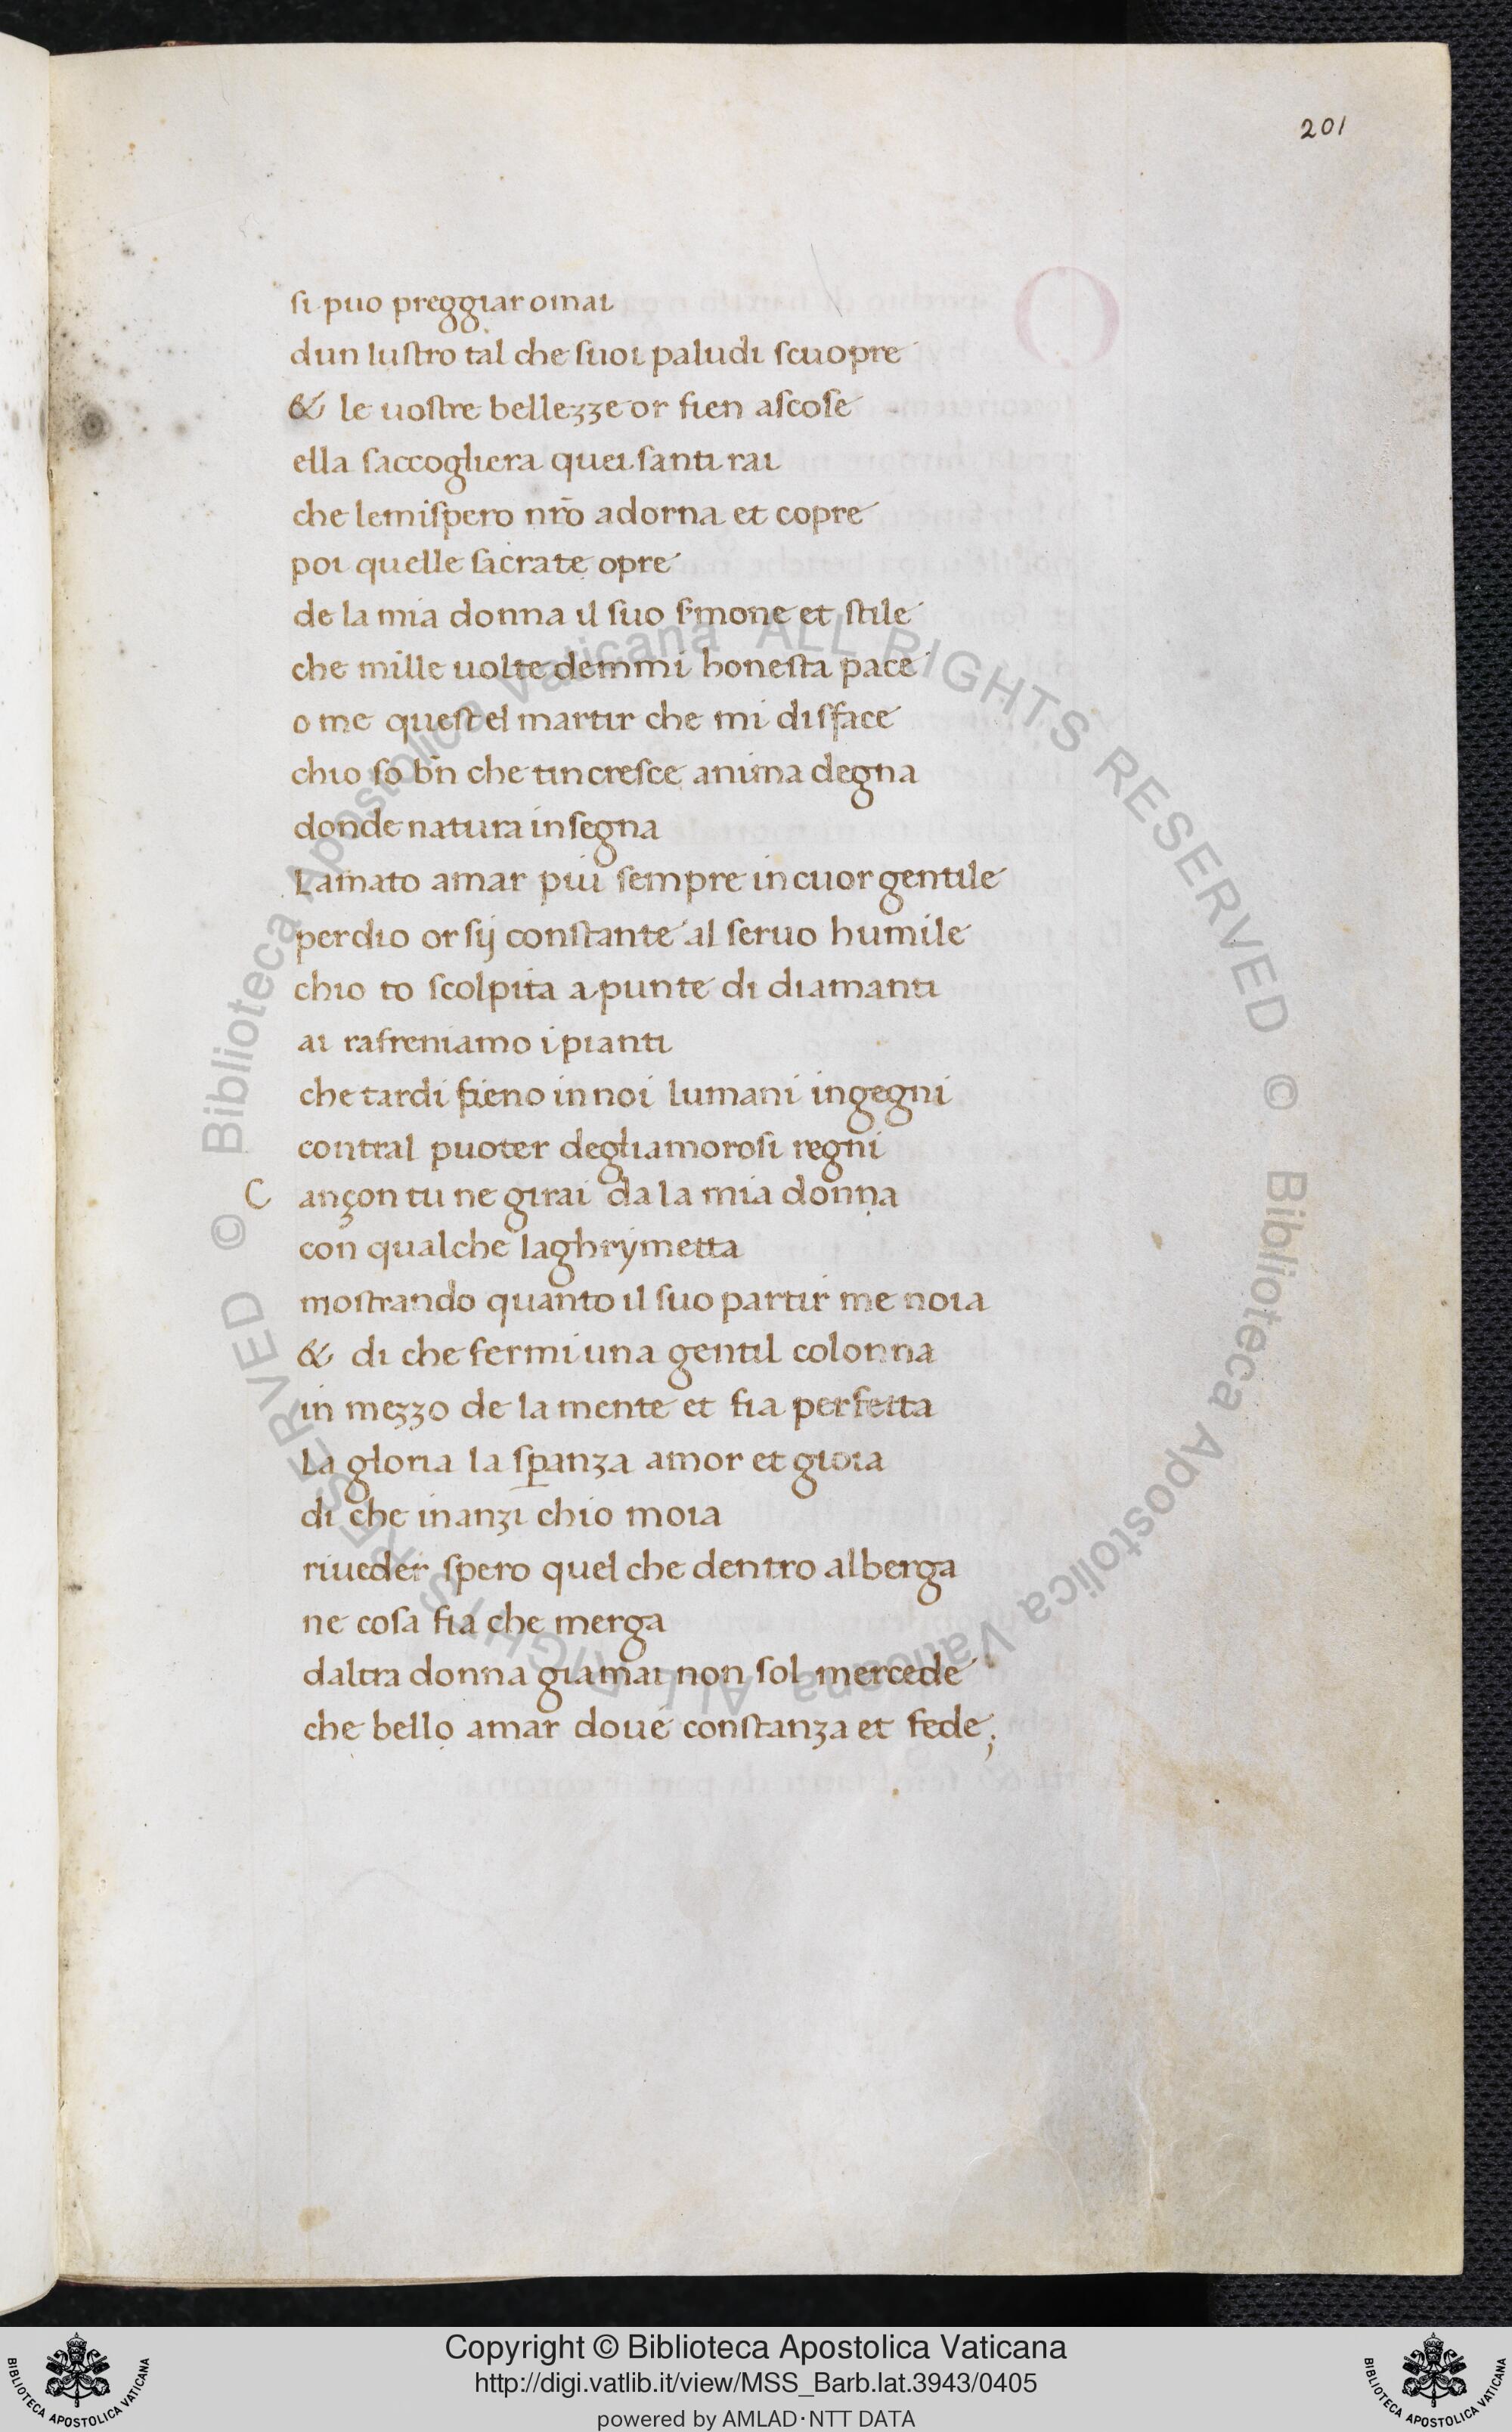 201
si puo preggiar omai
dun lustro tal che suoi paludi scuopre
& le uostre bellezze or fien ascose
ella saccogliera quei santi rai
che lemispero nr̄o adorna et copre
poi quelle sacrate opre
de la mia donna il suo s̄mone et stile
che mille uolte demmi honesta pace
o me quest el martir che mi disface
chio so bn̄ che tincresce anima degna
donde natura insegna
Lamato amar piu sempre in cuor gentile
perdio or sij constante al seruo humile
chio to scolpita a punte di diamanti
ai rafreniamo i pianti
che tardi fieno in noi lumani ingegni
contral puoter degliamorosi regni
C ançon tu ne girai da la mia donna
con qualche laghrymetta
mostrando quanto il suo partir me noia
& di che fermi una gentil colonna
in mezzo de la mente et fia perfetta
La gloria la sꝑanza amor et gioia
di che inanzi chio moia
riueder spero quel che dentro alberga
ne cosa fia che merga
daltra donna giamai non sol mercede
che bello amar doue constanza et fede;
© Biblioteca Apostolica Vaticana ALL RIGHTS RESERVED
© Biblioteca Apostolica Vaticana ALL RIGHTS RESERVED
BIBLIOTECA APOSTOLICA VATICANA
Copyright © Biblioteca Apostolica Vaticana
http://digi.vatlib.it/view/MSS_Barb.lat.3943/0405
powered by AMLAD·NTT DATA
BIBLIOTECA APOSTOLICA VATICANA